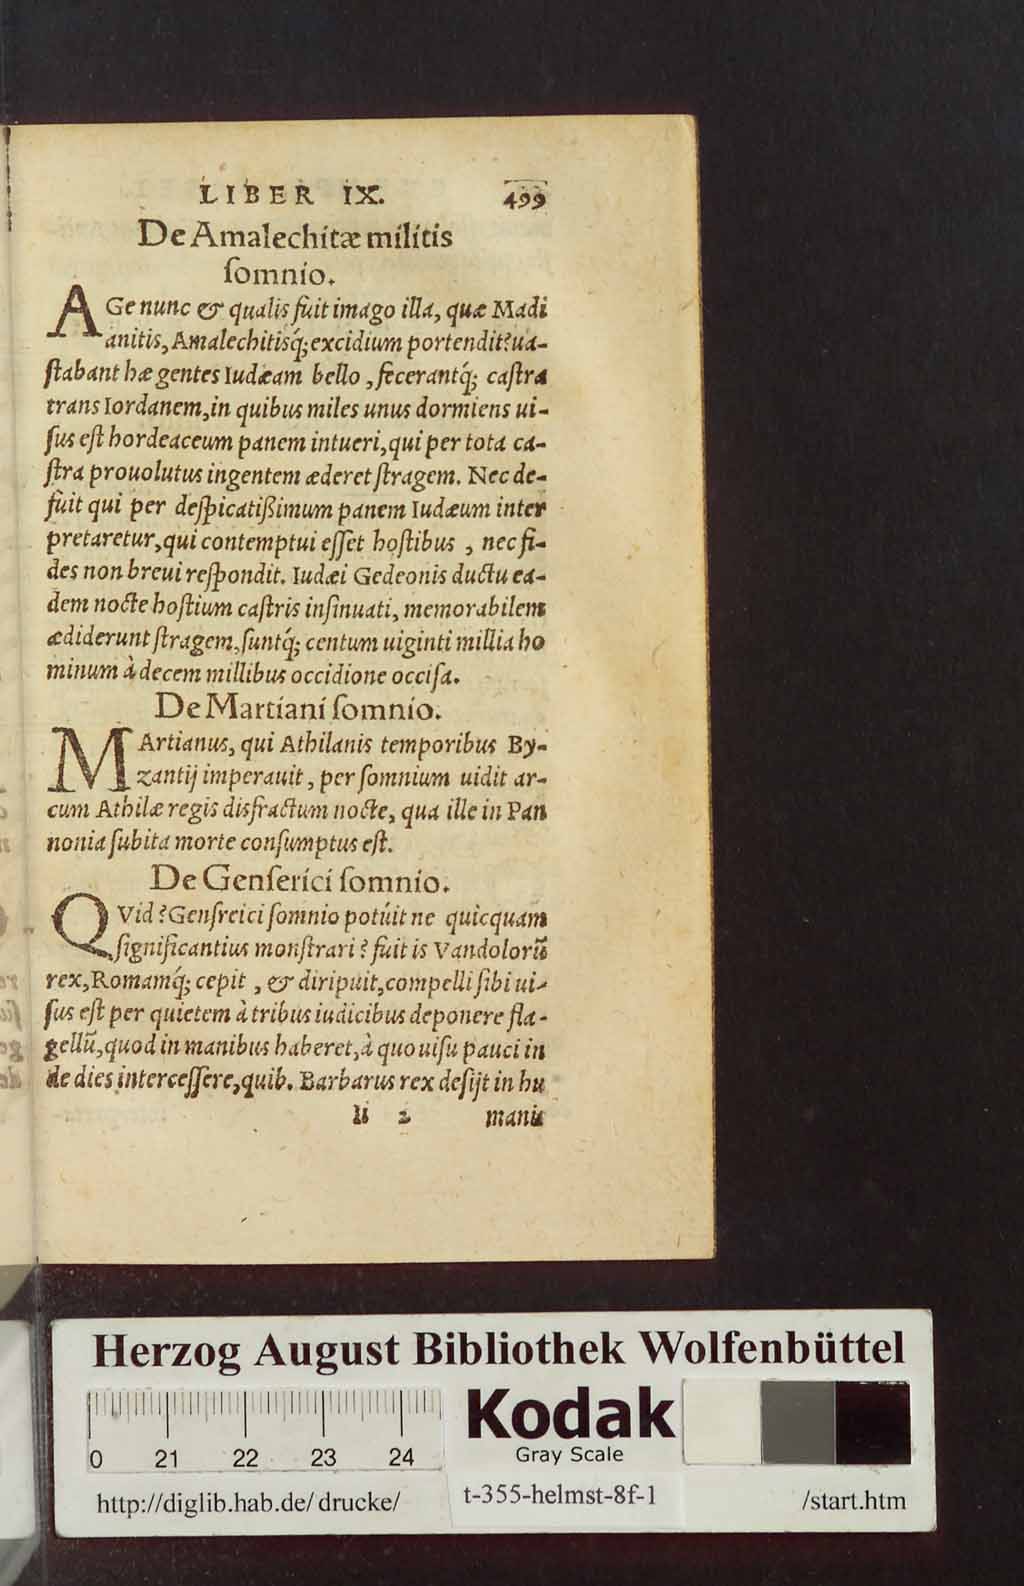 LIBER IX. 499
De Amalechitæ militis
ſomnio.
AGe nunc & qualis fuit imago illa, quæ Madi
anitis, Amalechitisq́; excidium portendit? ua-
ſtabant hæ gentes Iudæam bello, fecerantq́; caſtra
trans Iordanem, in quibus miles unus dormiens ui-
ſus eſt hordeaceum panem intueri, qui per tota ca-
ſtra prouolutus ingentem æderet ſtragem. Nec de-
fuit qui per deſpicatißimum panem Iudæum inter
pretaretur, qui contemptui eſſet hoſtibus, nec fi-
des non breui reſpondit. Iudæi Gedeonis ductu ea-
dem nocte hoſtium caſtris inſinuati, memorabilem
ædiderunt ſtragem, ſuntq́; centum uiginti millia ho
minum à decem millibus occidione occiſa.
De Martiani ſomnio.
MArtianus, qui Athilanis temporibus By-
zantij imperauit, per ſomnium uidit ar-
cum Athilæ regis disfractum nocte, qua ille in Pan
nonia ſubita morte conſumptus eſt.
De Genſerici ſomnio.
QVid? Genſreici ſomnio potúit ne quicquam
ſignificantius monſtrari? fuit is Vandolorũ
rex, Romamq́; cepit, & diripuit, compelli ſibi ui-
ſus eſt per quietem à tribus iudicibus deponere fla-
gellũ, quod in manibus haberet, à quo uiſu pauci in
de dies interceſſere, quib. Barbarus rex deſijt in hu
Ii 2 manis
Herzog August Bibliothek Wolfenbüttel
Kodak
Gray Scale
0 21 22 23 24
http://diglib.hab.de/drucke/ t-355-helmst-8f-1 /start.htm